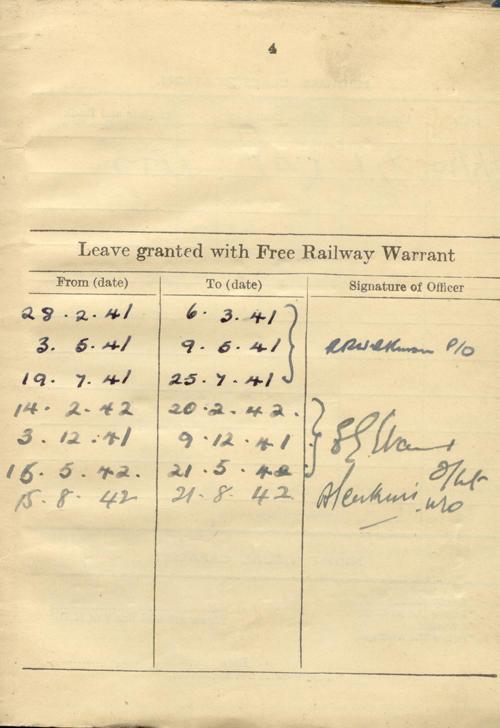 4
Leave granted with Free Railway Warrant
From (date) To (date) Signature of Officer
28.2.41 6.3.41
3.5.41 9.5.41 P/O
19.7.41 25.7.41
14.2.42 20.2.42.
3.12.41 9.12.41
15.5.42. 21.5.42
15.8.42 21.8.42